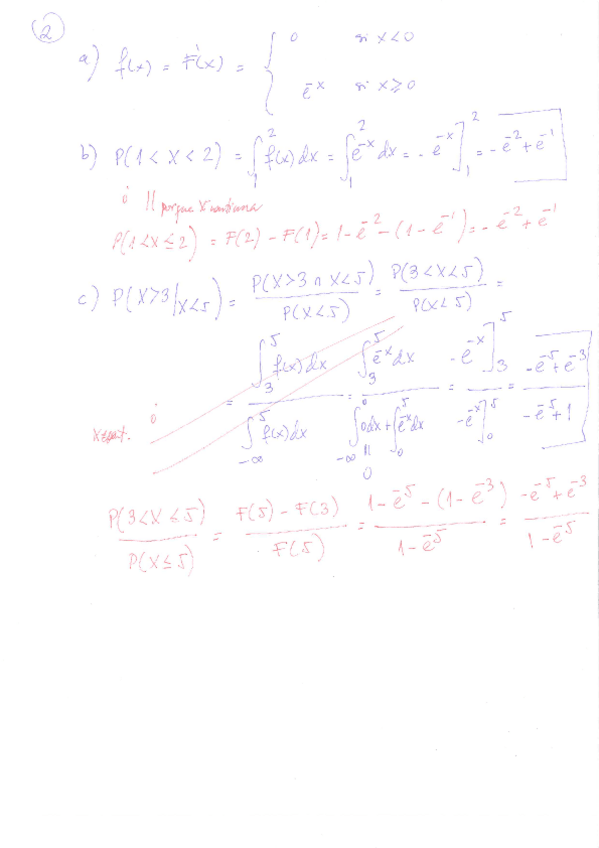 2
a) f(x) = F'(x) = { 0 si x<0
e^-x si x≥0
b) P(1<X<2) = ∫_1^2 f(x)dx = ∫_1^2 e^-x dx = -e^-x ]_1^2 = -e^-2 + e^-1
ó || porque X continua
P(1<X≤2) = F(2) - F(1) = 1-e^-2 - (1-e^-1) = -e^-2 + e^-1
c) P(X>3/X<5) = P(X>3 ∩ X<5) / P(X<5) = P(3<X<5) / P(X<5) =
= ∫_3^5 f(x)dx / ∫_-∞^5 f(x)dx = ∫_3^5 e^-x dx / (∫_-∞^0 0dx + ∫_0^5 e^-x dx) = -e^-x ]_3^5 / -e^-x ]_0^5 = (-e^-5 + e^-3) / (-e^-5 + 1)
ó
||
0
P(3<X≤5) / P(X≤5) = (F(5) - F(3)) / F(5) = (1-e^-5 - (1-e^-3)) / (1-e^-5) = (-e^-5 + e^-3) / (1-e^-5)